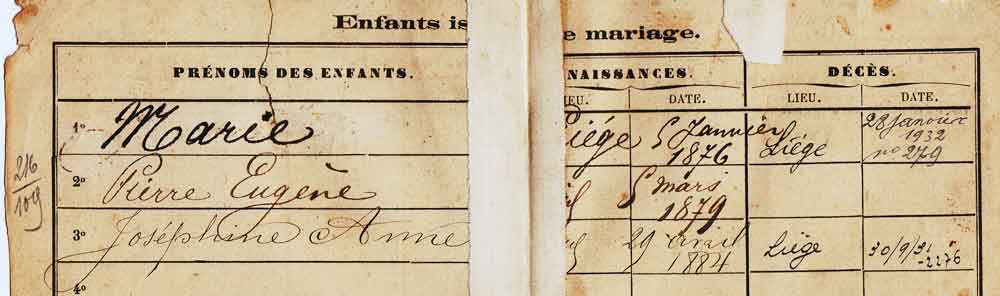 Enfants is e mariage.
PRÉNOMS DES ENFANTS. NAISSANCES. DÉCÈS.
IEU. DATE. LIEU. DATE.
1º Marie Liége 5 Janvier 1876 Liége 28 Janvier 1932 nº 279
216
109
2º Pierre Eugène 5 mars 1879
3º Joséphine Anne 29 avril 1884 Liége 30/9/31 -2276
4º